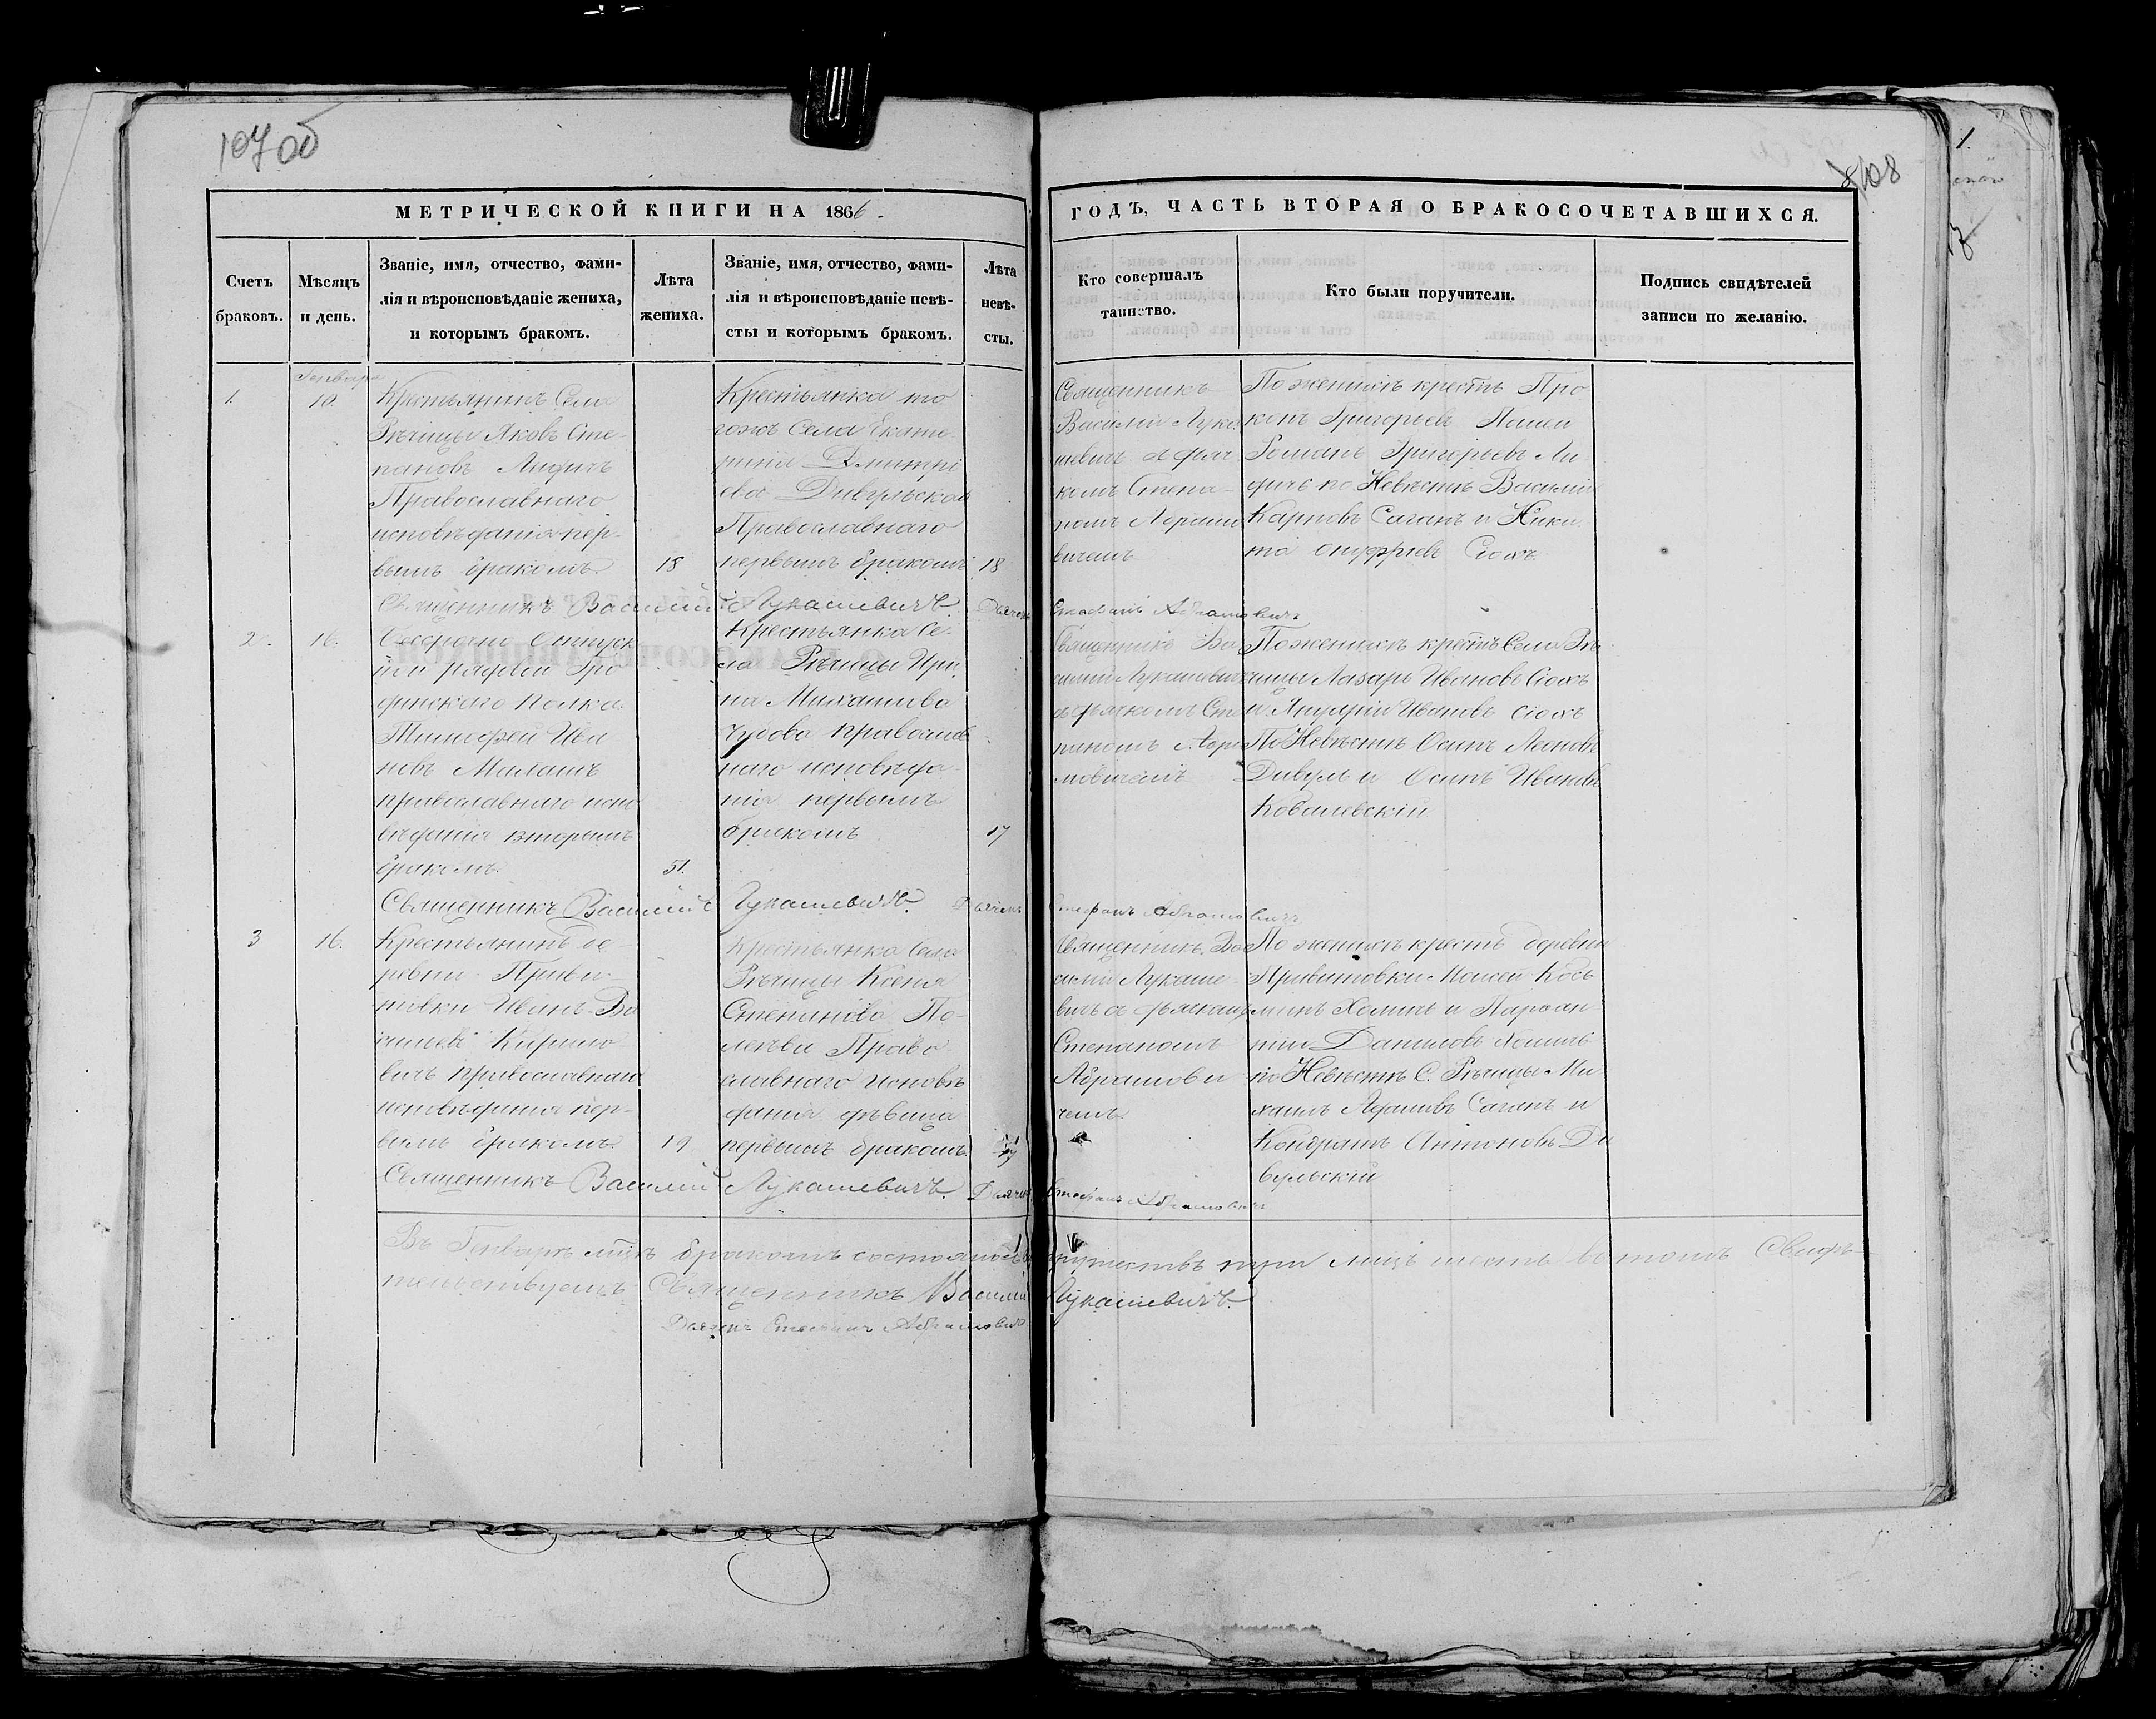 107 об
108
МЕТРИЧЕСКОЙ КНИГИ НА 1866
ГОДЪ, ЧАСТЬ ВТОРАЯ О БРАКОСОЧЕТАВШИХСЯ.
Счетъ браковъ.
Мѣсяцъ и день.
Званіе, имя, отчество, фами-
лія и вѣроисповѣданіе жениха,
и которымъ бракомъ.
Лѣта
жениха.
Званіе, имя, отчество, фами-
лія и вѣроисповѣданіе невѣ-
сты и которымъ бракомъ.
Лѣта
невѣ-
сты.
Кто совершалъ
таинство.
Кто были поручители.
Подпись свидѣтелей
записи по желанію.
1.
Генваря
10
Крестьянинъ Села
Рѣчицы Яковъ Сте-
пановъ
Православнаго
исповѣданія пер-
вымъ бракомъ
18
Крестьянка то
гожъ Села Екате
рина Дмитрі
ева Дивульская
Православнаго
первымъ бракомъ
18
Священникъ
Василій Лука
шевичъ съ дьяч
комъ Степа-
номъ Абрамо
вичемъ
По женихѣ крестн Про
копъ Григорьевъ
Романъ Григорьевъ Ли
по Невѣстѣ Василій
Карповъ Саганъ и Ники
та Онуфріевъ Сіохъ
Священникъ Василій Лукашевичъ. Дьячекъ Стефанъ Абрамовичъ
2.
16.
Безсрочно Отпуск
ной рядовой Гро
дненскаго Полка
Тимофей Ива
новъ Малашъ
православнаго испо
вѣданія вторымъ
бракомъ
51.
Крестьянка Се-
ла Рѣчицы Ири
на Михаилова
православ
наго исповѣда-
нія первымъ
бракомъ
17
Священникъ Ва
силій Лукашевичъ
съ дьячкомъ Сте
паномъ Абра
мовичемъ
По женихѣ крестн Села Рѣ
чицы Лазарь Ивановъ Сіохъ
и Ануфрій Ивановъ Сіохъ
По Невѣстѣ Осипъ Леоновъ
Дивул и Осипъ Ивановъ
Ковалевскій
Священникъ Василій Лукашевичъ. Дьячекъ Стефанъ Абрамовичъ
3
16.
Крестьянинъ де-
ревни Приви-
товки Иванъ Ва
силіевъ Кирило
вичъ православнаго
исповѣданія пер-
вымъ бракомъ
19
Крестьянка Села
Рѣчицы Ксенія
Степанова По-
лева Право
славнаго исповѣ
данія дѣвица
первымъ бракомъ
Священникъ Ва
силій Лукаше
вичъ съ дьячкомъ
Степаномъ
Абрамови
чемъ
По женихѣ крестн деревни
Привитовки Моисей Кось
минъ Хомичъ и
Даниловъ Хомичъ
по Невѣстѣ С. Рѣчицы Ми
хаилъ Адамовъ Саганъ и
Кондратъ Антоновъ Ди
вульскій
Священникъ Василій Лукашевичъ. Дьячекъ Стефанъ Абрамовичъ
Въ Генварѣ мцѣ бракомъ состоялось супружествъ три лицъ шесть въ томъ Свидѣ-
тельствуемъ Священникъ Василій Лукашевичъ.
Дьячекъ Стефанъ Абрамовичъ